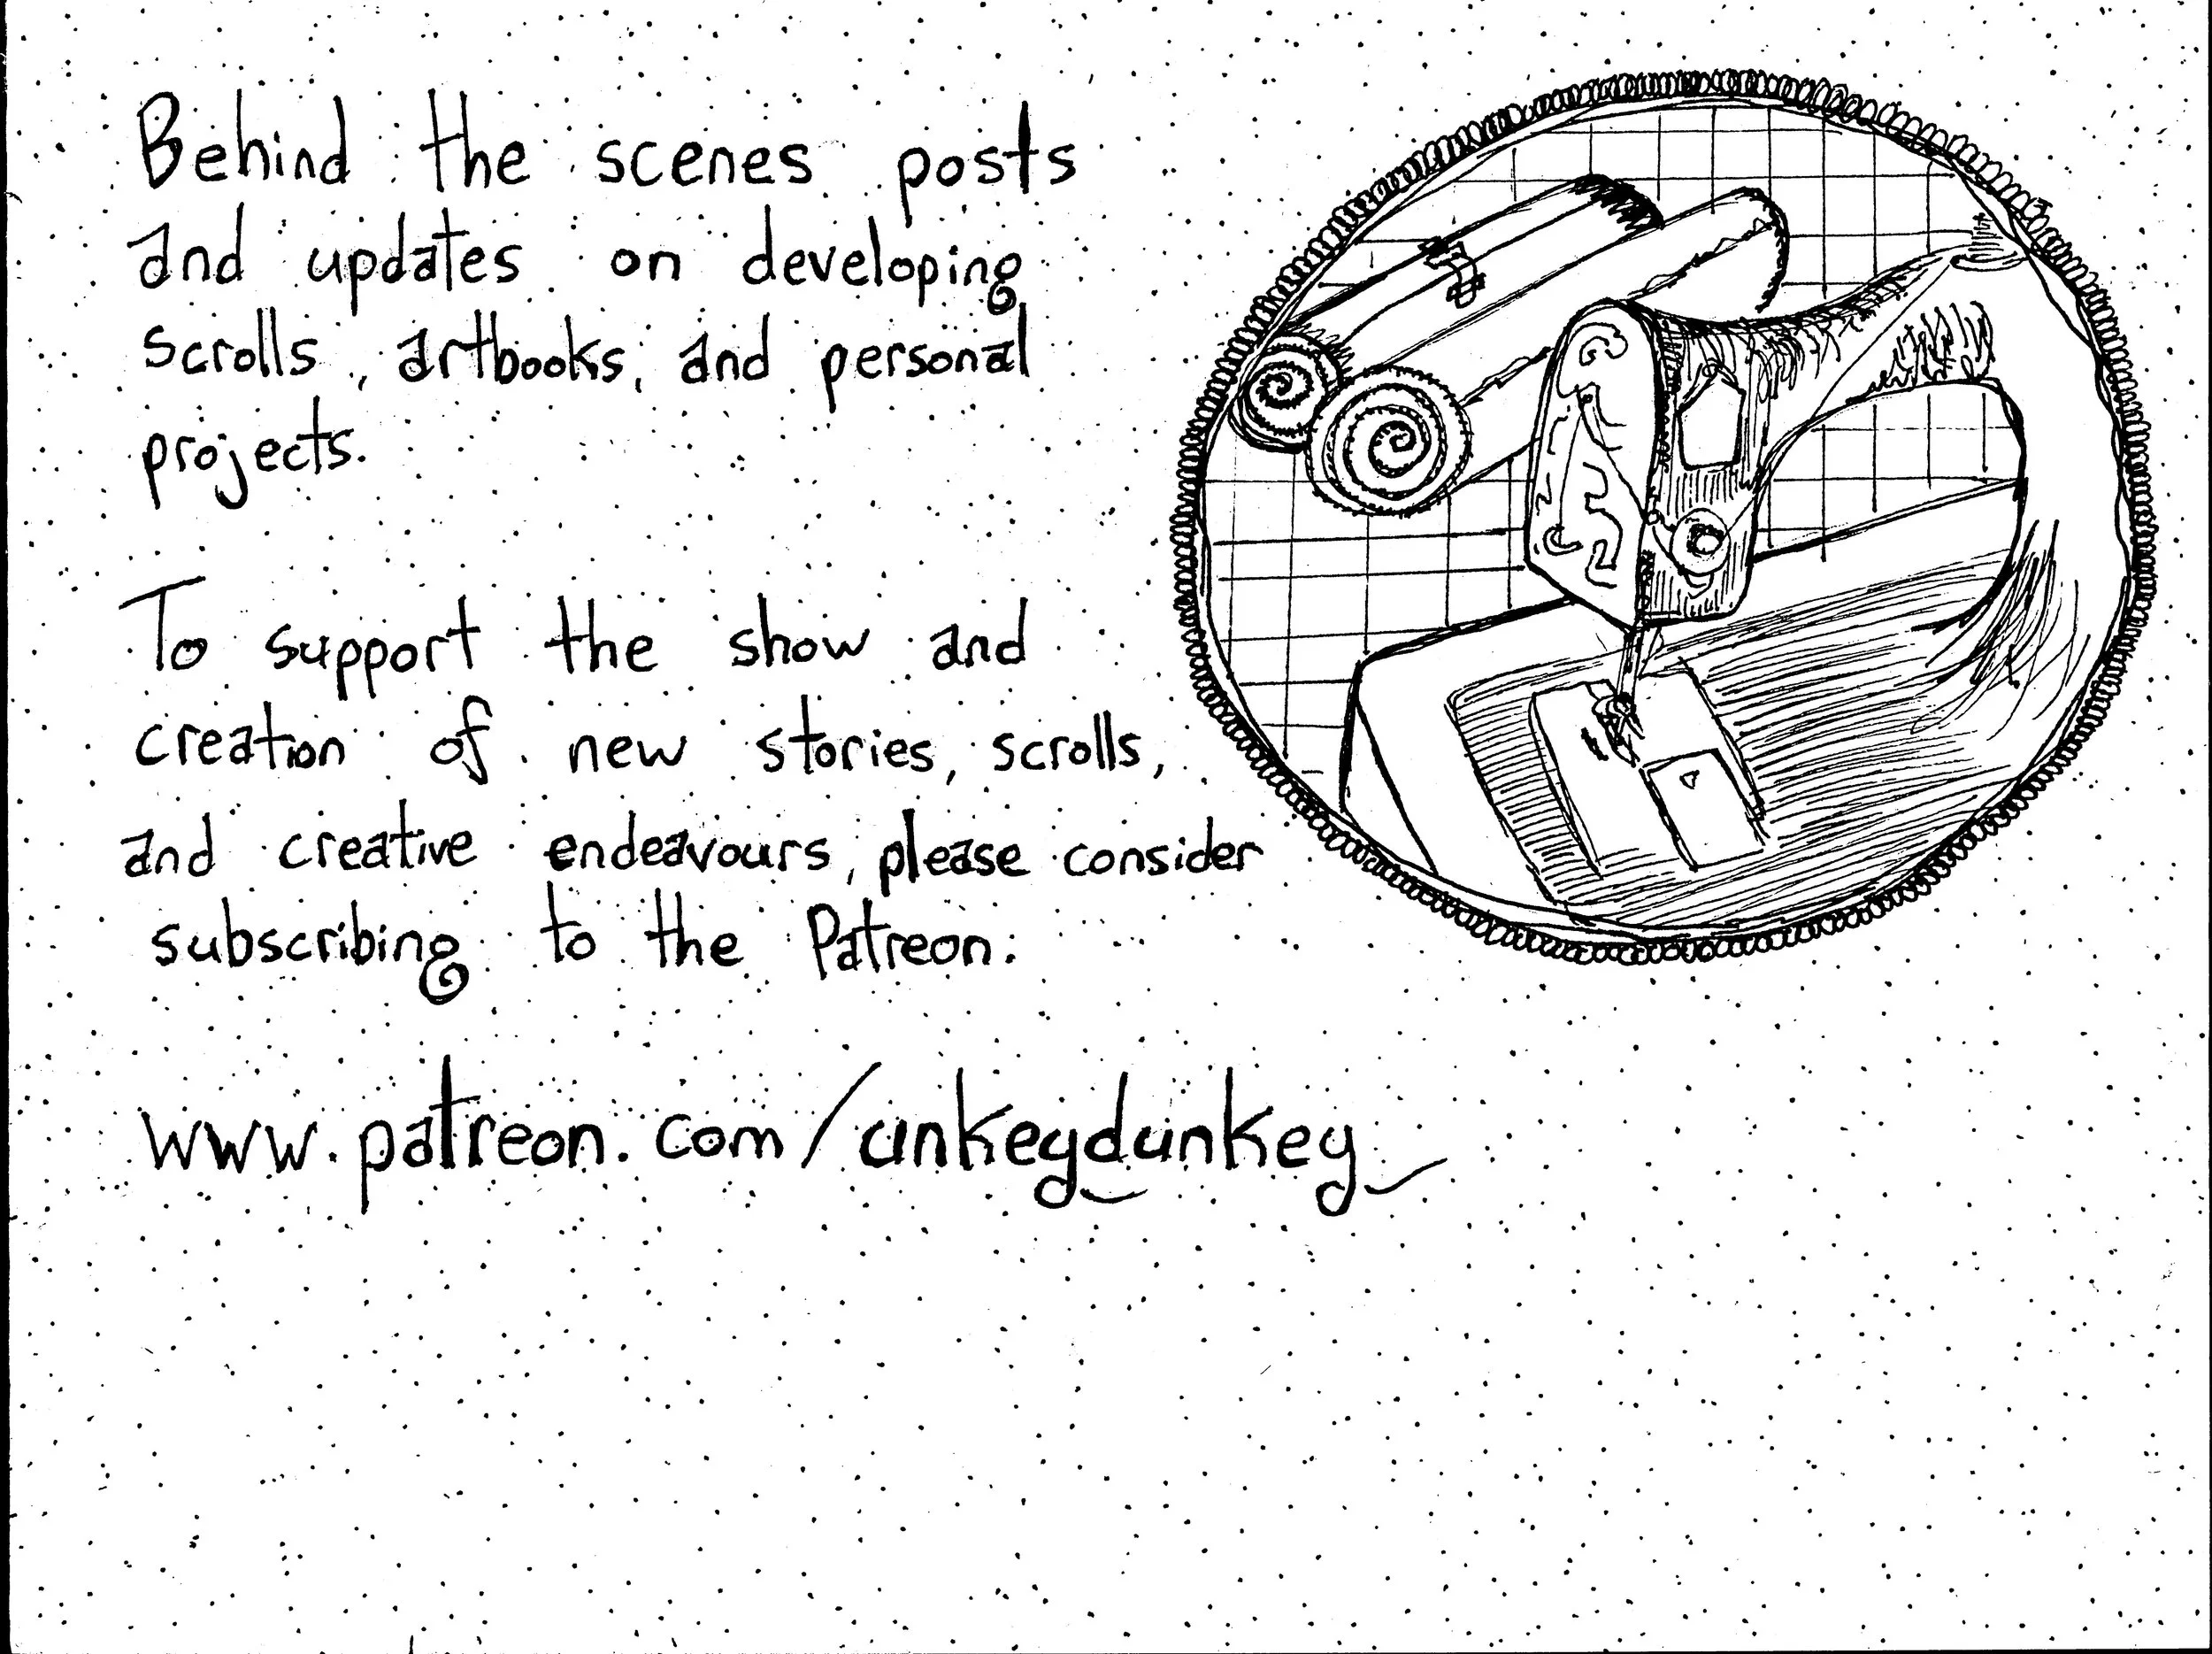 Behind the scenes posts
and updates on developing
scrolls, artbooks, and personal
projects.
To support the show and
creation of new stories, scrolls,
and creative endeavours, please consider
subscribing to the Patreon.
www.patreon.com/unkeydunkey